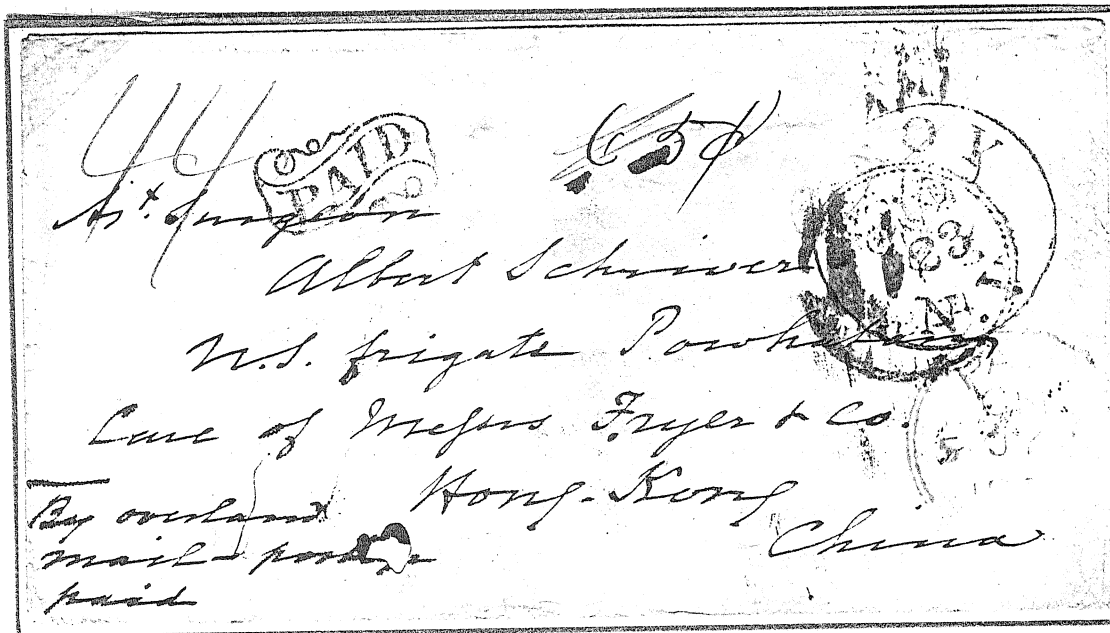 44
PAID
65¢
Ast. Surgeon
Albert Schriver
U.S. frigate Powhatan
Care of Messrs Fryer & Co.
Hong-Kong
China
By overland
mail - postage
paid
23
N.Y.